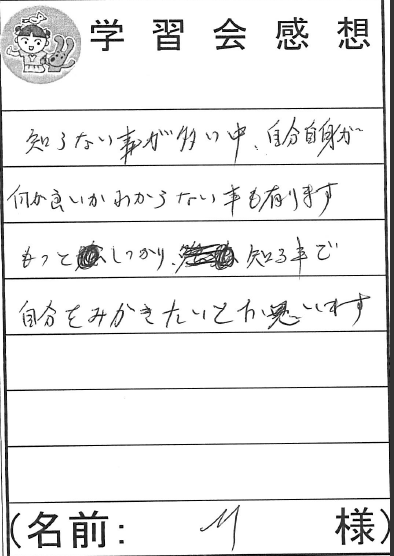 学習会感想
知らない事が多い中、自分自身が
何が良いかわからない事も有ります
もっとしっかり、知る事で
自分をみがきたいと思います
(名前: M 様)